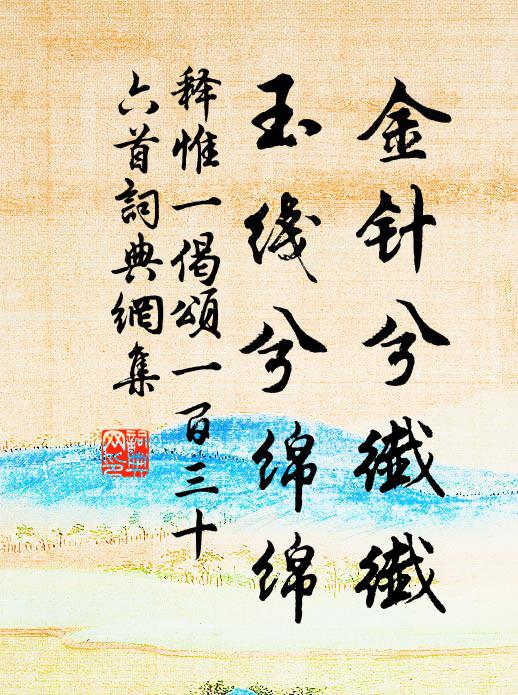 金针兮纖纖
玉线兮绵绵
释惟一偈頌一百三十
六首詞典網集